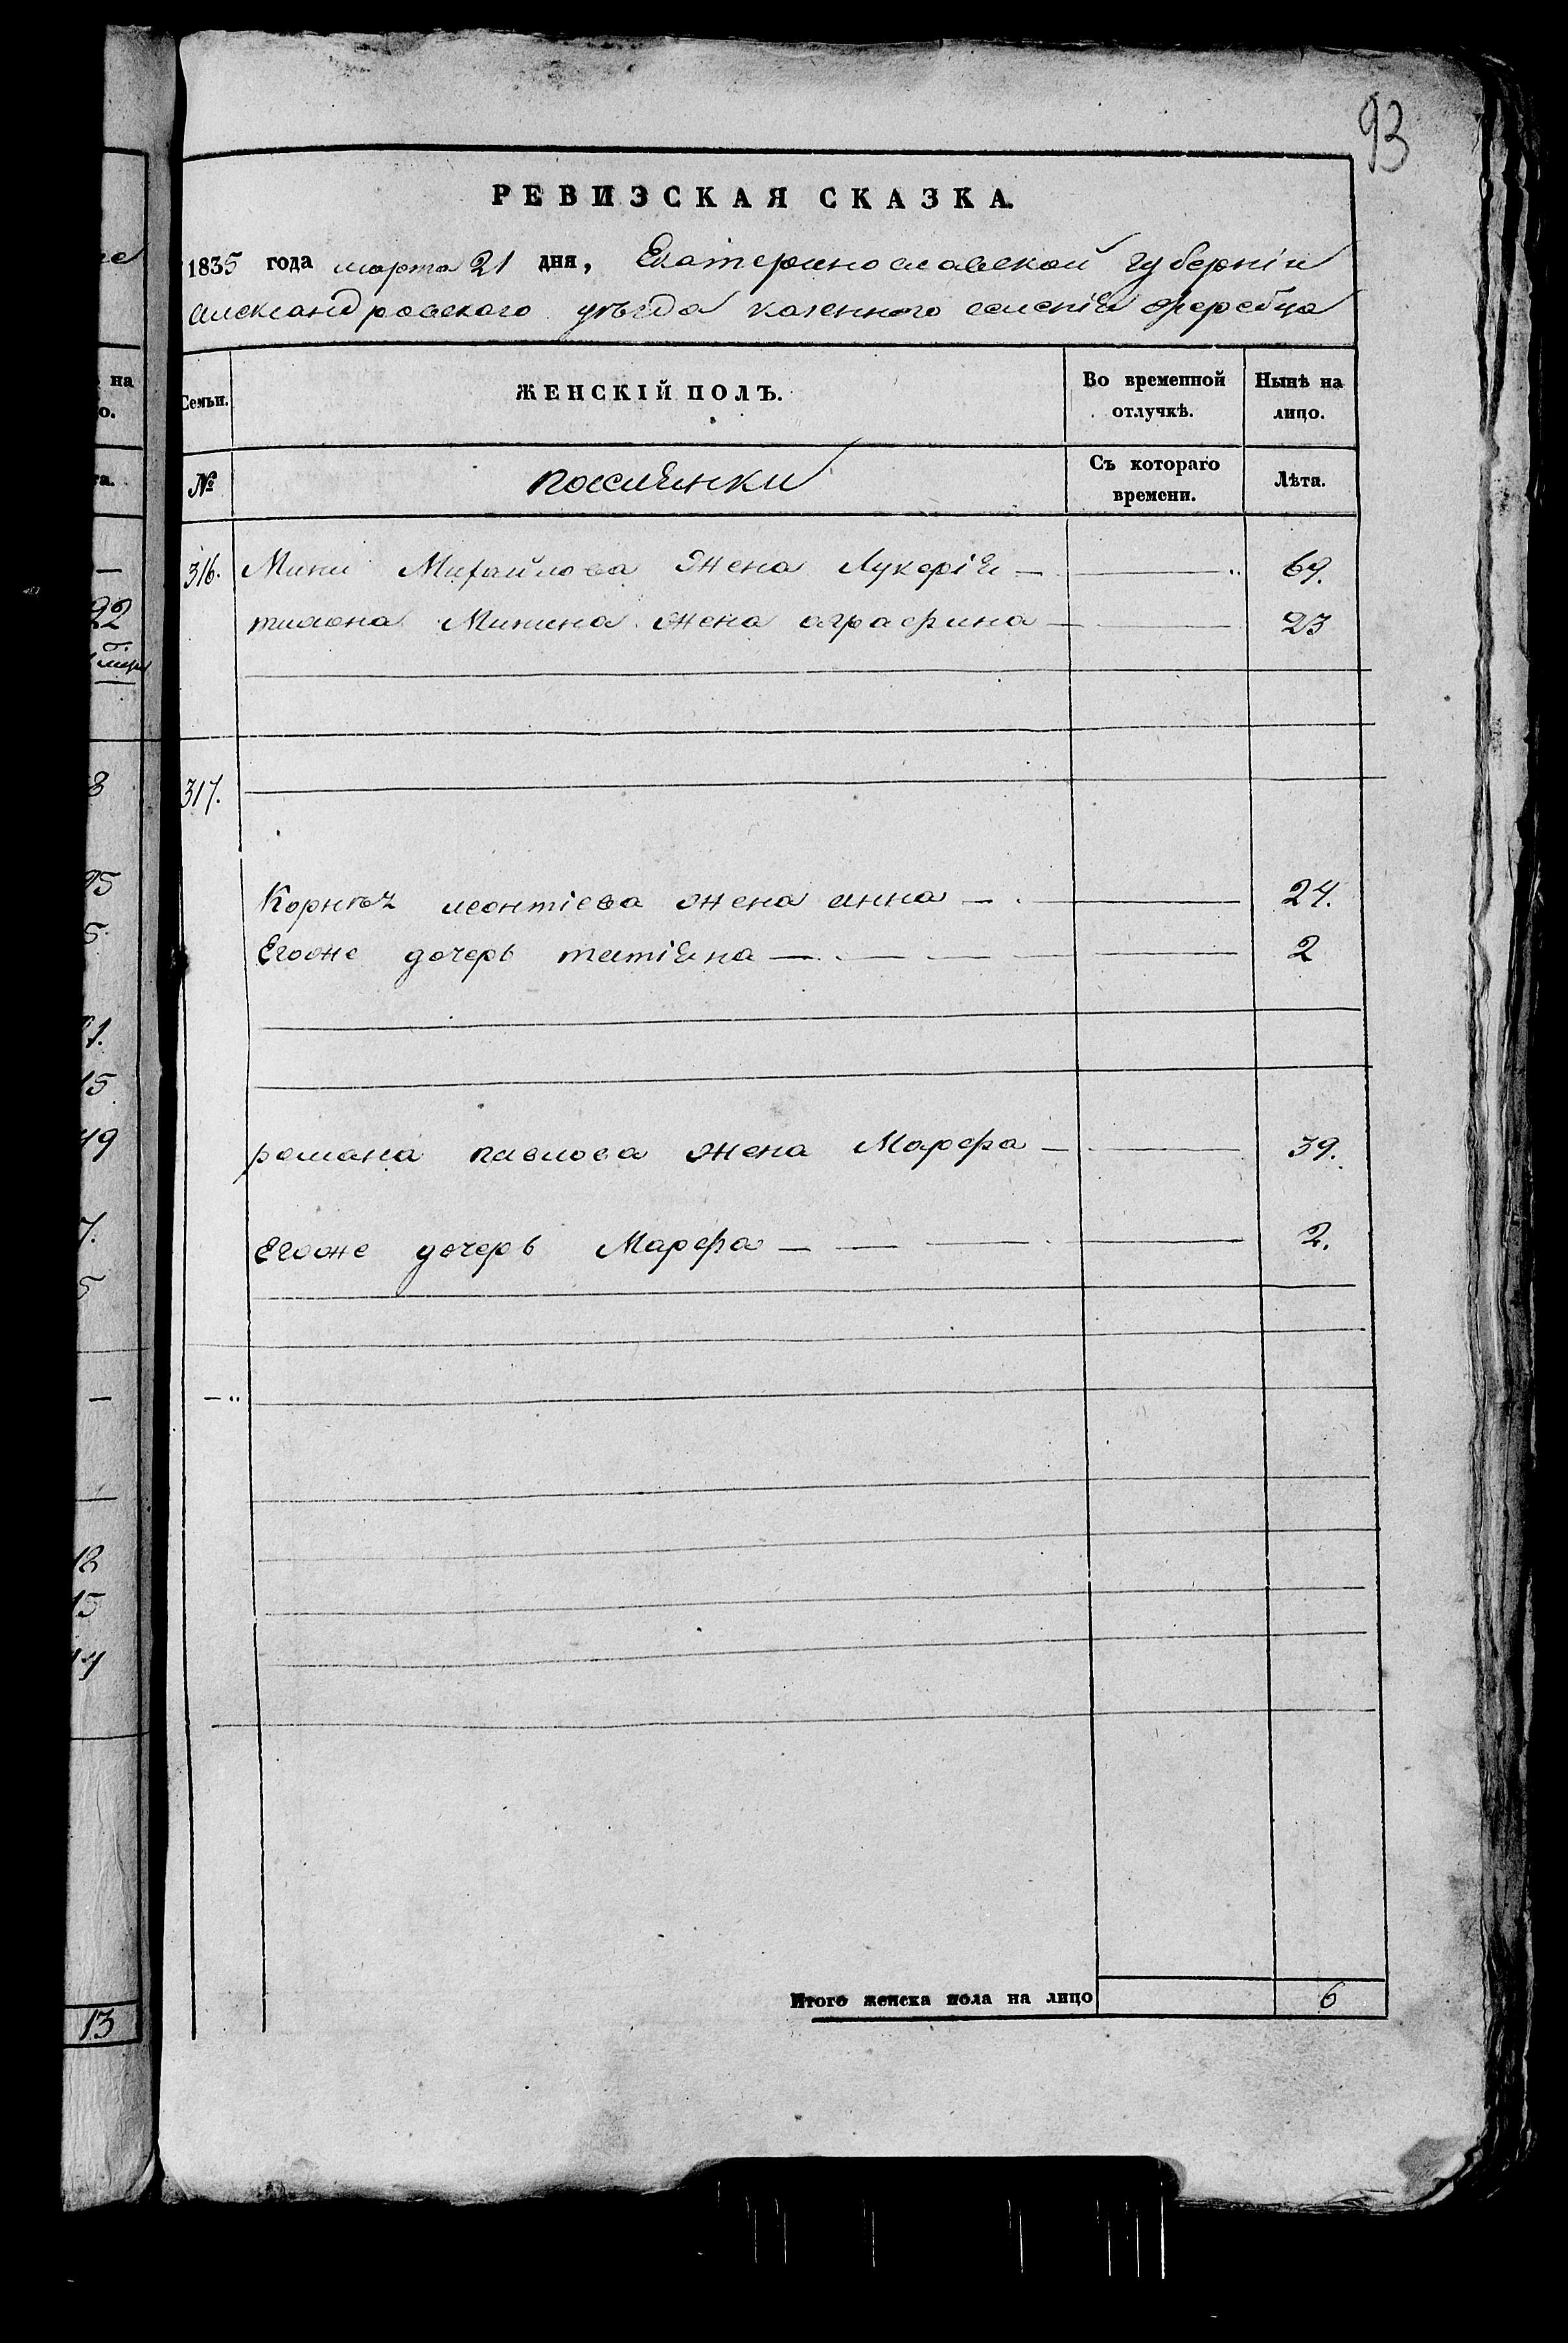 93
РЕВИЗСКАЯ СКАЗКА.
1835 года марта 21 дня, Екатеринославской губерніи
александровского уѣзда казенного селенія жеребца
Семьи. ЖЕНСКІЙ ПОЛЪ. Во временной отлучкѣ. Нынѣ на лицо.
№ поселянки Съ котораго времени. Лѣта.
316. Мини Михайлова жена Лукерія — 69.
Минина жена аграфина — 23
317.
Корнѣя леонтіева жена анна — 24.
Егоже дочерь татіяна — 2
романа павлова жена Марфа — 39.
Егоже дочерь Марфа — 2.
Итого женска пола на лицо 6
на
о.
та.
22
8
95
5
1.
15
49
7.
5
18
15
14
13